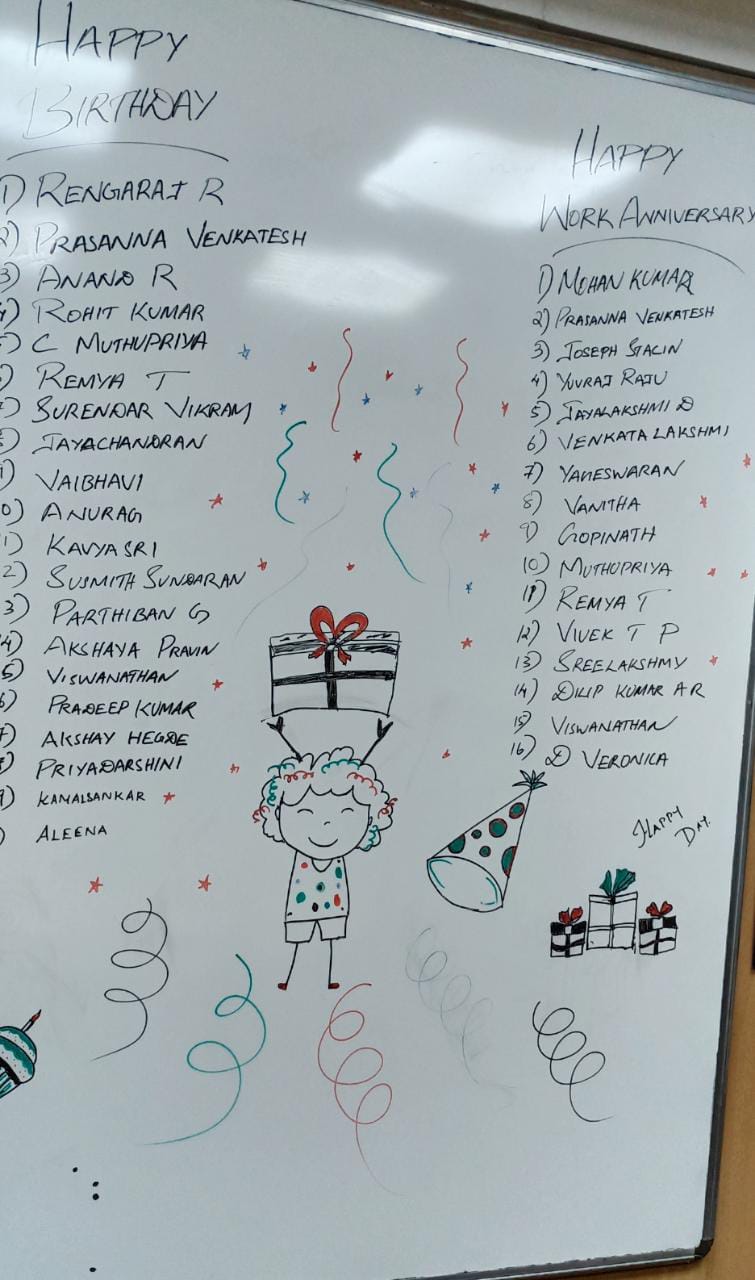 HAPPY
BIRTHDAY
1) RENGARAJ R
2) PRASANNA VENKATESH
3) ANAND R
4) ROHIT KUMAR
5) C MUTHUPRIYA
) REMYA T
SURENDAR VIKRAM
JAYACHANDRAN
) VAIBHAVI
0) ANURAG
1) KAVYA SRI
2) SUSMITH SUNDARAN
3) PARTHIBAN G
4) AKSHAYA PRAVIN
5) VISWANATHAN
6) PRADEEP KUMAR
7) AKSHAY HEGDE
8) PRIYADARSHINI
9) KAMALSANKAR
) ALEENA
HAPPY
WORK ANNIVERSARY
1) MOHAN KUMAR
2) PRASANNA VENKATESH
3) JOSEPH STALIN
4) YUVRAJ RAJU
5) JAYALAKSHMI D
6) VENKATA LAKSHMI
7) YAMESWARAN
8) VANITHA
9) GOPINATH
10) MUTHUPRIYA
11) REMYA T
12) VIVEK T P
13) SREELAKSHMY
14) DILIP KUMAR A R
15) VISWANATHAN
16) D VERONICA
HAPPY
DAY.